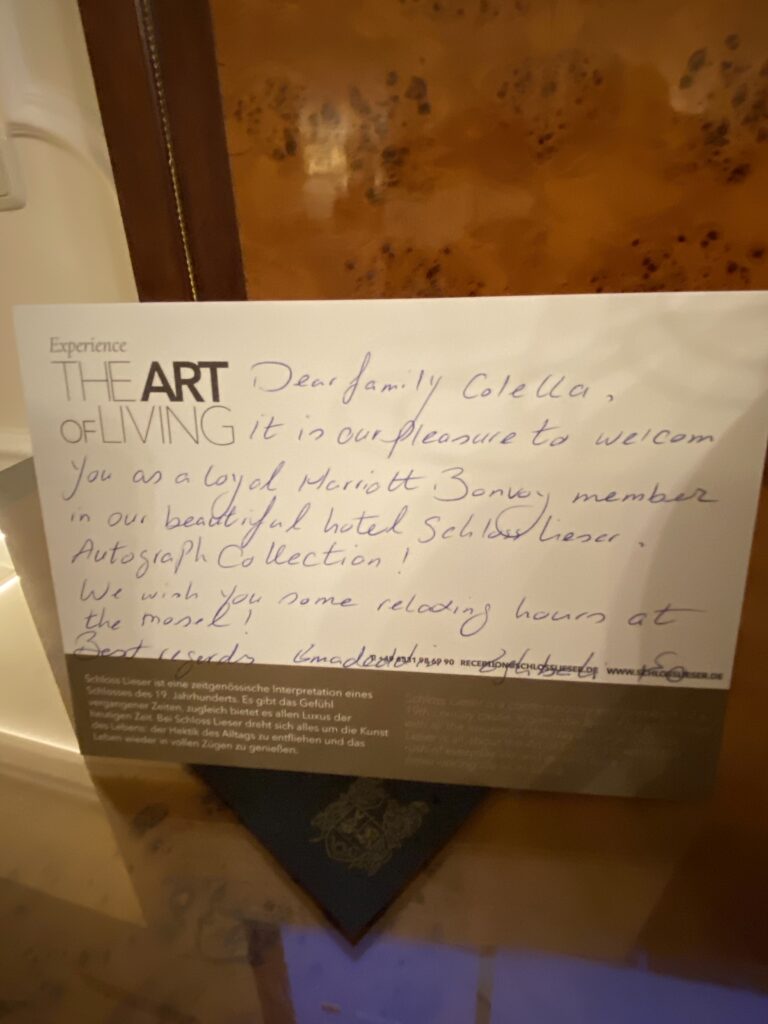 Experience
THE ART
OF LIVING
Dear family Colella,
it is our pleasure to welcom
you as a loyal Marriott Bonvoy member
in our beautiful hotel Schloss Lieser,
Autograph Collection!
We wish you some relaxing hours at
the mosel!
Best regards
RECEPTION@SCHLOSSLIESER.DE WWW.SCHLOSSLIESER.DE
Schloss Lieser ist eine zeitgenössische Interpretation eines
Schlosses des 19. Jahrhunderts. Es gibt das Gefühl
vergangener Zeiten, zugleich bietet es allen Luxus der
heutigen Zeit. Bei Schloss Lieser dreht sich alles um die Kunst
des Lebens: der Hektik des Alltags zu entfliehen und das
Leben wieder in vollen Zügen zu genießen.